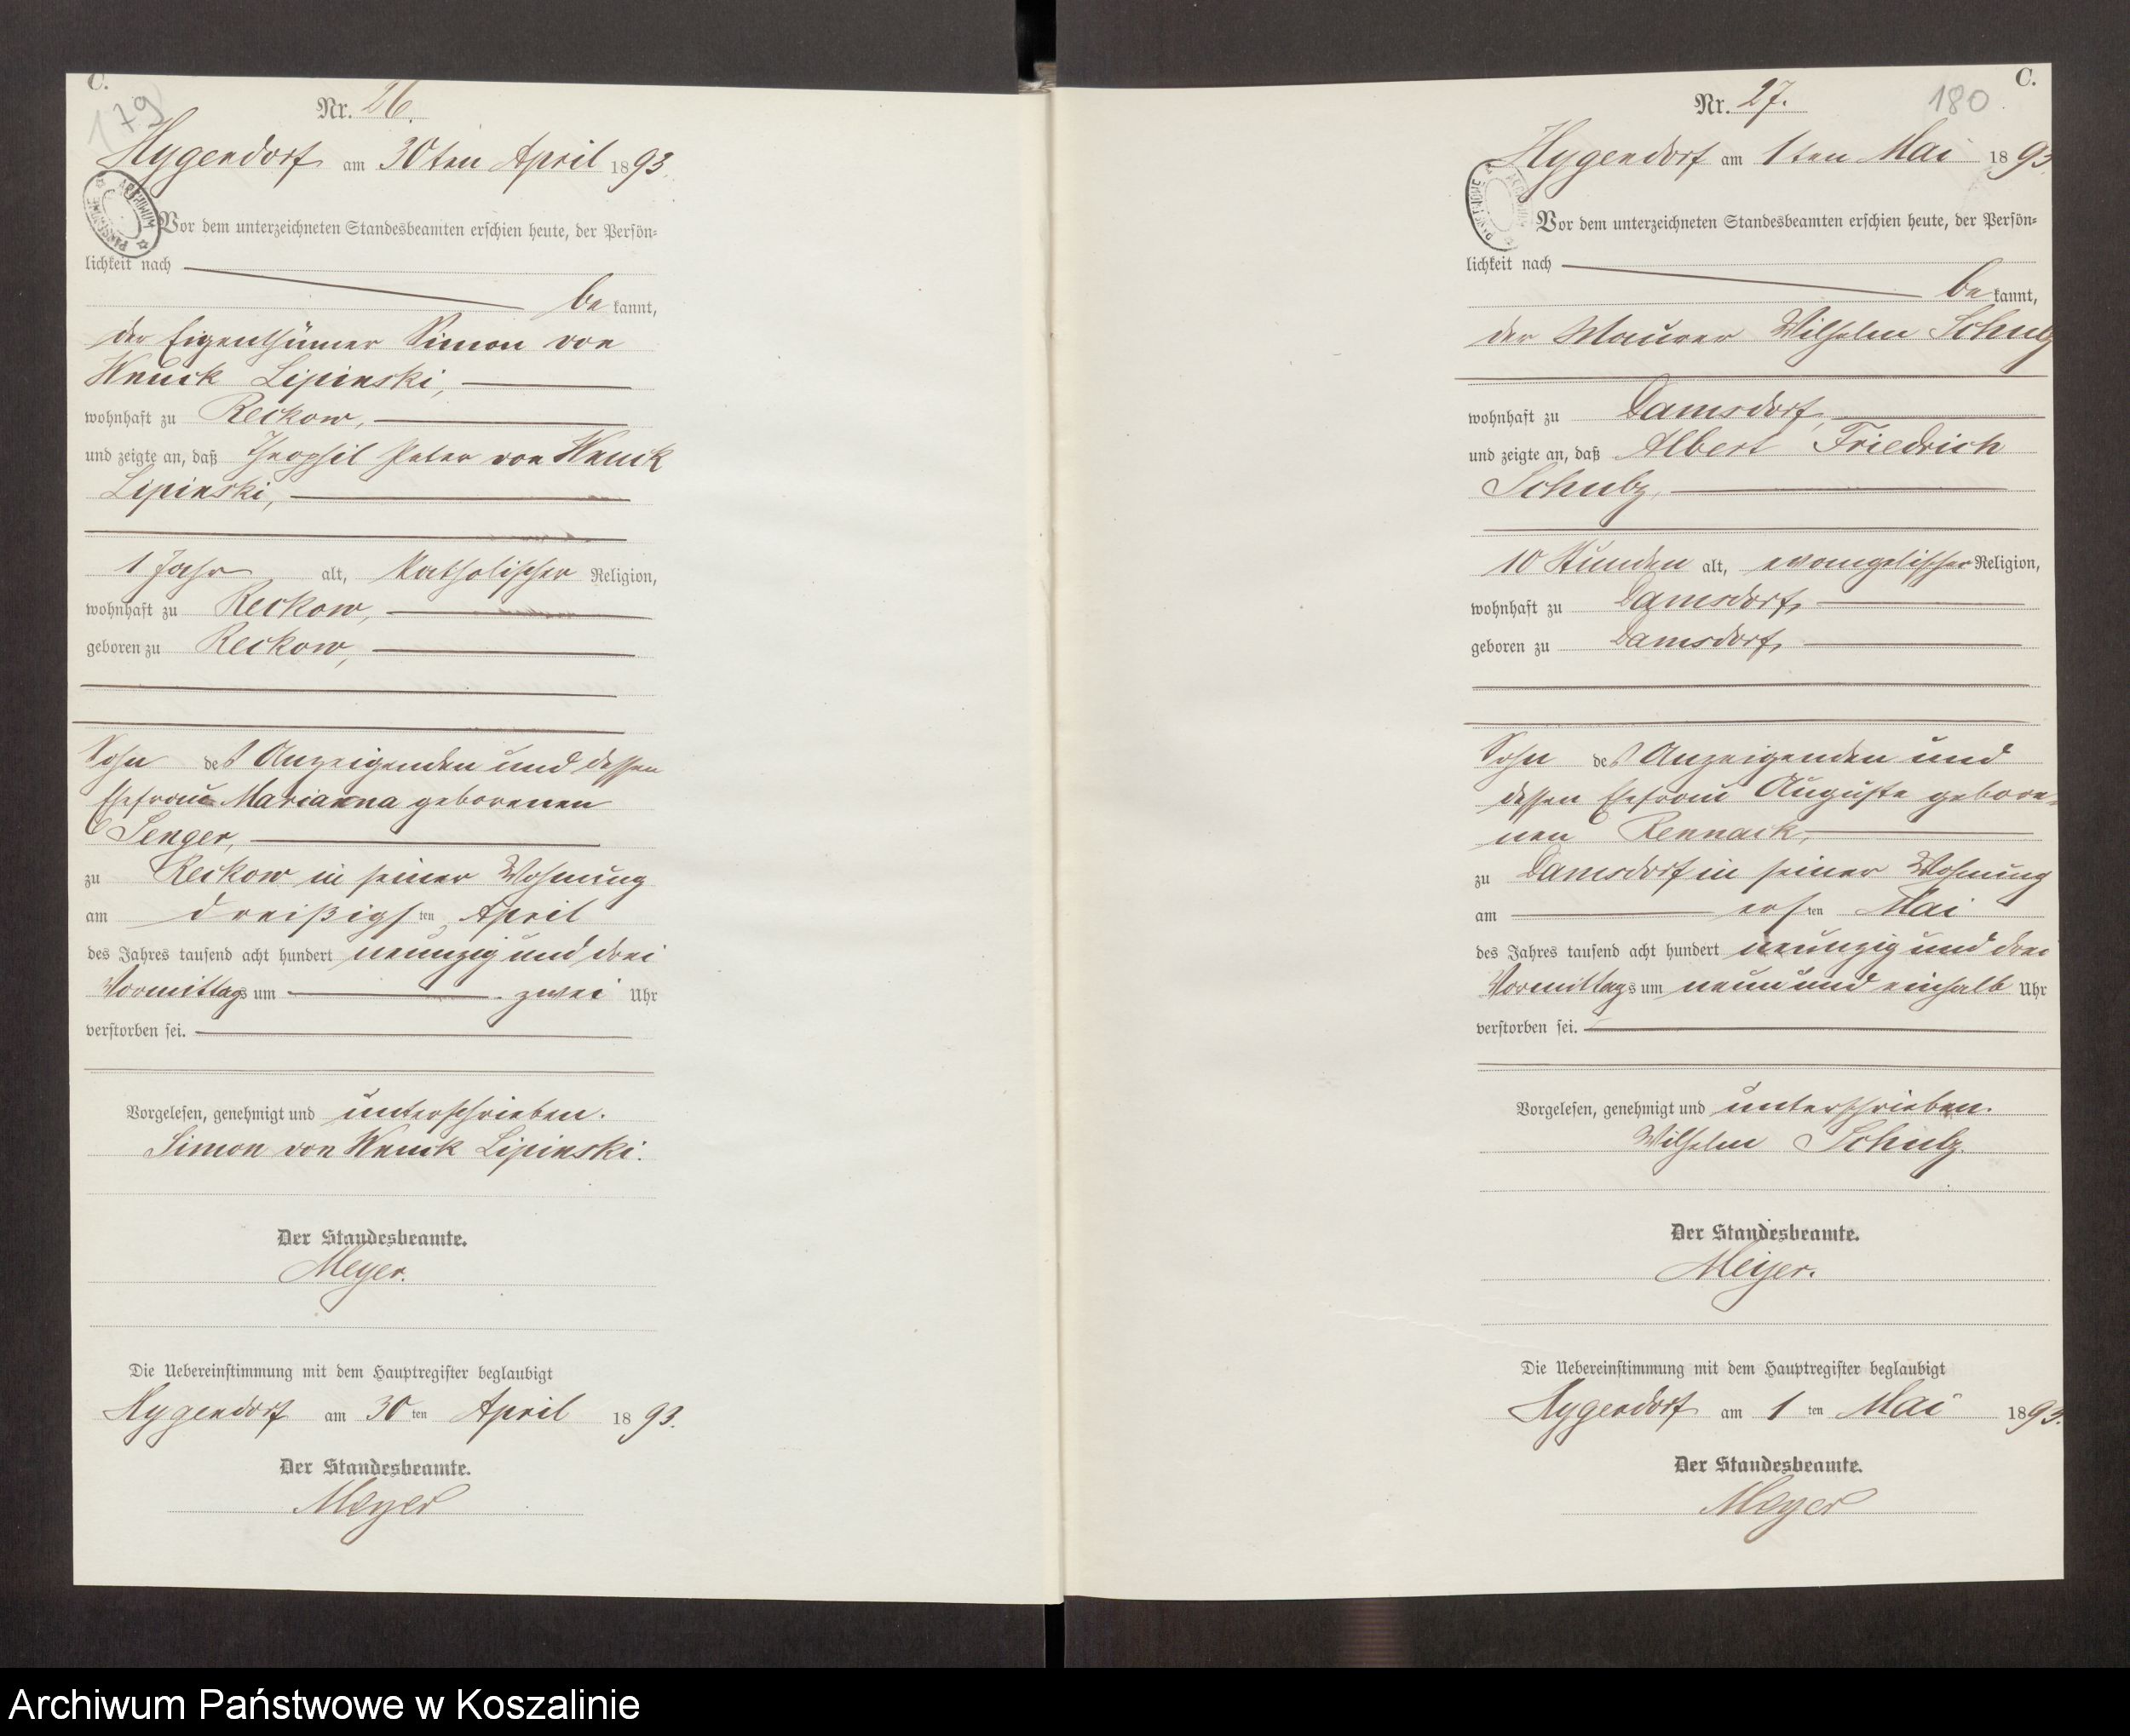 C.
179
Nr. 26.
Hygendorf am 30ten April 1893.
Vor dem unterzeichneten Standesbeamten erschien heute, der Persön-
lichkeit nach
be kannt,
der Eigenthümer Simon von
Wnuck Lipinski,
wohnhaft zu Reckow,
und zeigte an, daß Theophil Peter von Wnuck
Lipinski,
1 Jahr alt, katholischer Religion,
wohnhaft zu Reckow,
geboren zu Reckow,
Sohn des Anzeigenden und dessen
Ehefrau Marianna geborenen
Senger,
zu Reckow in seiner Wohnung
am dreißigsten April
des Jahres tausend acht hundert neunzig und drei
Vormittags um zwei Uhr
verstorben sei.
Vorgelesen, genehmigt und unterschrieben.
Simon von Wnuck Lipinski.
Der Standesbeamte.
Meyer.
Die Uebereinstimmung mit dem Hauptregister beglaubigt
Hygendorf am 30ten April 1893.
Der Standesbeamte.
Meyer
C.
180
Nr. 27.
Hygendorf am 1ten Mai 1893.
Vor dem unterzeichneten Standesbeamten erschien heute, der Persön-
lichkeit nach
be kannt,
der Maurer Wilhelm Schulz
wohnhaft zu Damsdorf,
und zeigte an, daß Albert Friedrich
Schulz,
10 Stunden alt, evangelischer Religion,
wohnhaft zu Damsdorf,
geboren zu Damsdorf,
Sohn des Anzeigenden und
dessen Ehefrau Auguste gebore-
nen Rennack,
zu Damsdorf in seiner Wohnung
am ersten Mai
des Jahres tausend acht hundert neunzig und drei
Vormittags um neun und einhalb Uhr
verstorben sei.
Vorgelesen, genehmigt und unterschrieben.
Wilhelm Schulz.
Der Standesbeamte.
Meyer.
Die Uebereinstimmung mit dem Hauptregister beglaubigt
Hygendorf am 1ten Mai 1893.
Der Standesbeamte.
Meyer
Archiwum Państwowe w Koszalinie